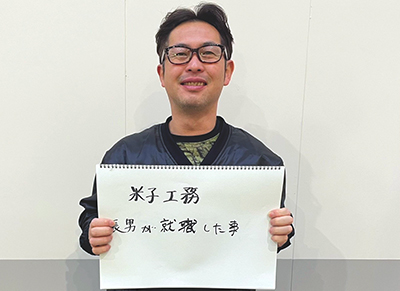 米子工務
長男が就職した事